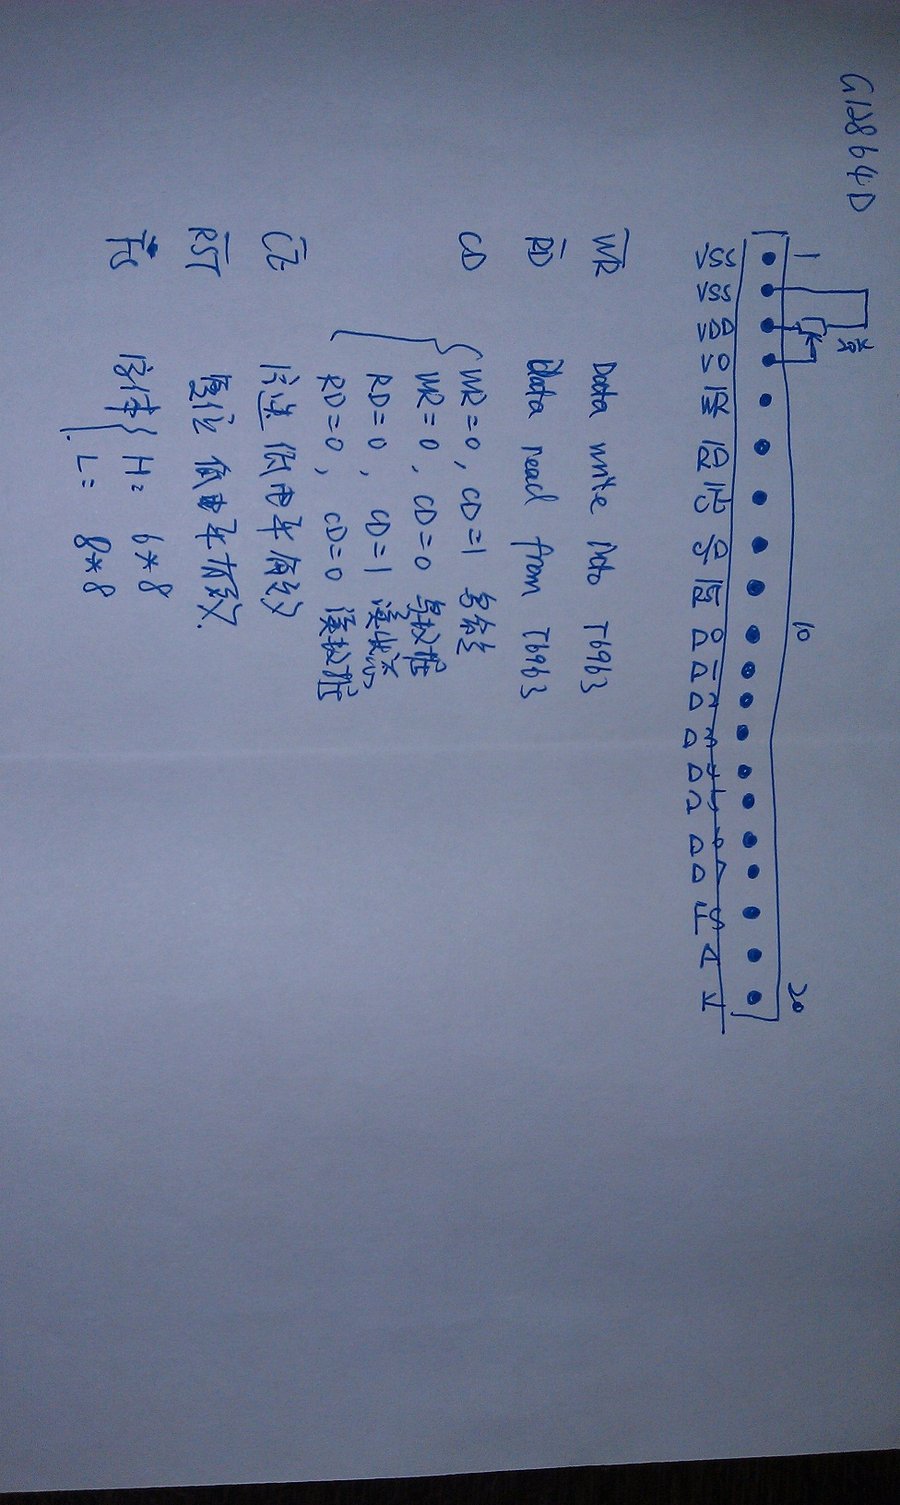 G12864D
1 10 20
VSS VSS VDD VO WR RD CE CD RST D0 D1 D2 D3 D4 D5 D6 D7 FS A K
WR Data write Data T6963
RD Data read from T6963
CD WR=0, CD=1 写命令
WR=0, CD=0 写数据
RD=0, CD=1 读状态
RD=0, CD=0 读数据
CE 片选 低电平有效
RST 复位 低电平有效.
FS 字体 H= 6*8
L= 8*8